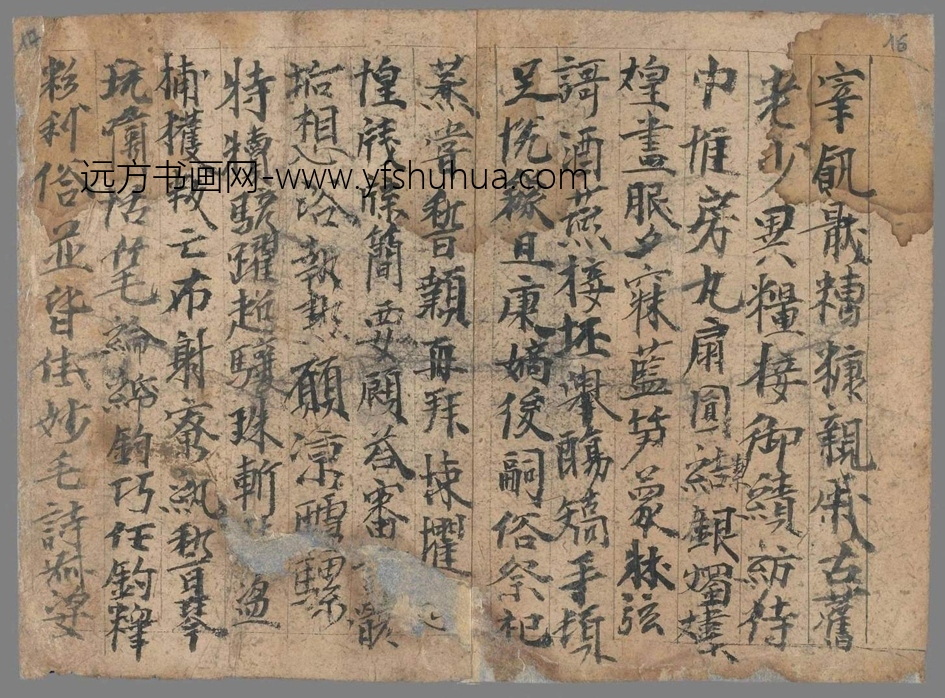 16
宰飢猒糟糠親戚古舊
老少異糧接御績紡侍
巾惟房丸扇圓結銀燭煒
煌晝眠夕寐藍笋象牀弦
謌酒燕接坯舉觴矯手頓
足悅豫且康嫡後嗣俗祭祀
蒸嘗嵆顙再拜悚懼
惶牋牒簡要顧荅審骸
垢想浴執熱願涼驢騾
特犢駭躍超驤珠斬盜
捕獲叛亡布射寮紈嵇琴
阮嘯恬笔綸紙鈞巧任釣釋
粉利俗並皆佳妙毛詩
17
远方书画网-www.yfshuhua.com